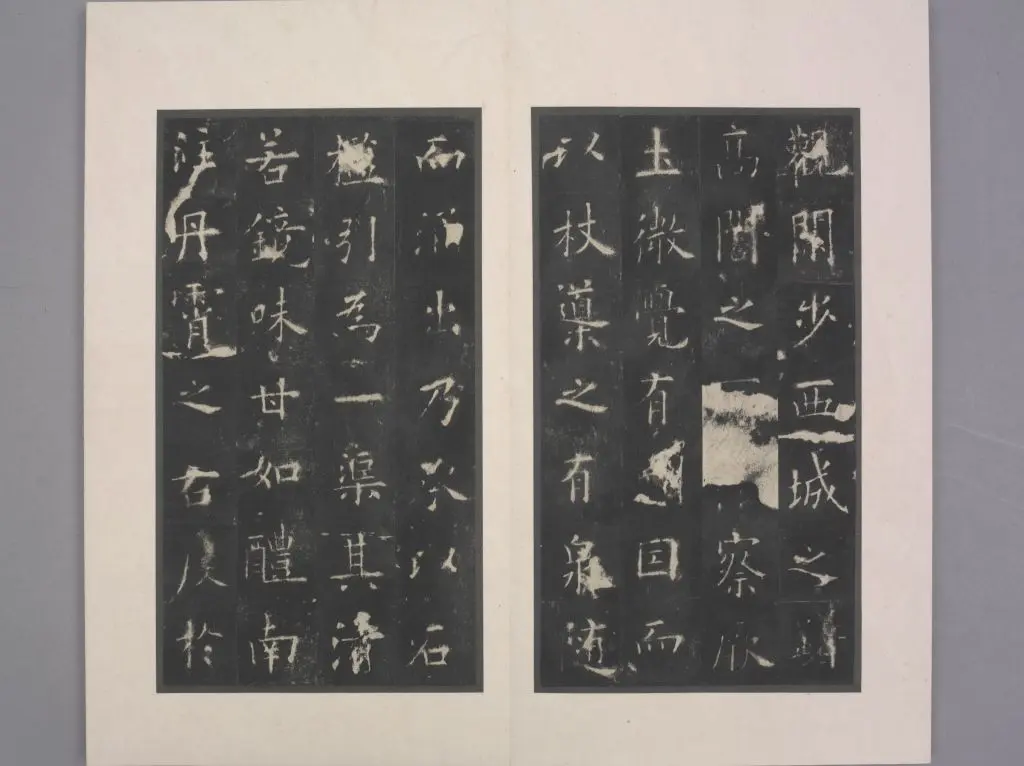 觀閒步西城之陰
高閣之察厥
土微覺有因而
以杖導之有泉隨
而涌出乃承以石
檻引為一渠其清
若鏡味甘如醴南
注丹霄之右度於